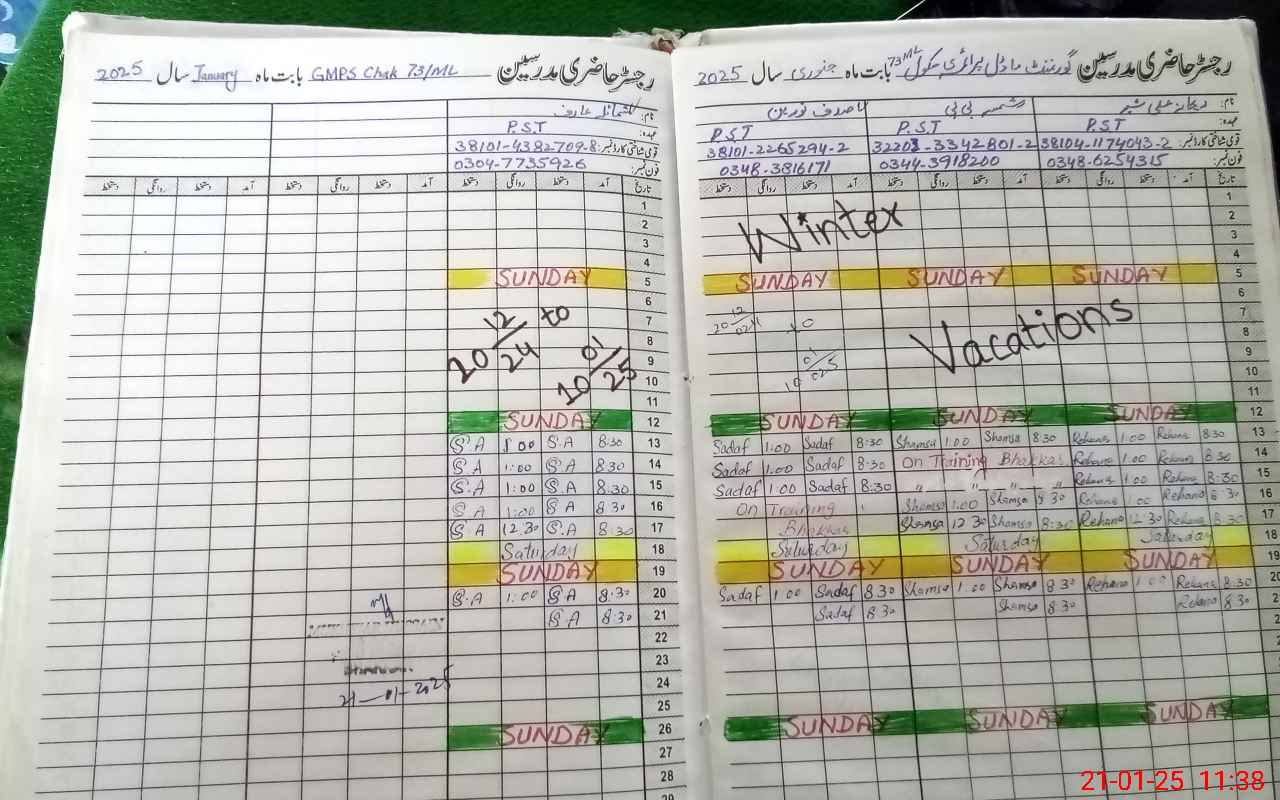 رجسٹر حاضری مدرسین GMPS Chak 73/ML بابت ماہ January سال 2025
نام: شمائلہ عارف
عہدہ: P.S.T
قومی شناختی کارڈ نمبر: 38101-4382709-8
فون نمبر: 0304-7735926
تاریخ آمد دستخط روانگی دستخط آمد دستخط روانگی دستخط آمد دستخط روانگی دستخط
1
2
3
4
SUNDAY 5
6
20 12/24 to 7
8
10 01/25 9
10
11
SUNDAY 12
S.A 1:00 S.A 8:30 13
S.A 1:00 S.A 8:30 14
S.A 1:00 S.A 8:30 15
S.A 1:00 S.A 8:30 16
S.A 12:30 S.A 8:30 17
Saturday 18
SUNDAY 19
S.A 1:00 S.A 8:30 20
S.A 8:30 21
22
23
24
21-01-2025
25
SUNDAY 26
27
28
29
رجسٹر حاضری مدرسین گورنمنٹ ماڈل پرائمری سکول 73ML بابت ماہ جنوری سال 2025
نام: ریحانہ علی شیر شمسہ بی بی صدف نورین
عہدہ: P.S.T P.S.T P.S.T
قومی شناختی کارڈ نمبر: 38104-1174043-2 32203-3342801-2 38101-2265294-2
فون نمبر: 0348-6254315 0344-3918200 0348-3816171
تاریخ آمد دستخط روانگی دستخط آمد دستخط روانگی دستخط آمد دستخط روانگی دستخط
1
Winter 2
3
4
SUNDAY SUNDAY SUNDAY 5
6
Vacations 7
8
9
10
11
SUNDAY SUNDAY SUNDAY 12
Sadaf 1:00 Sadaf 8:30 Shamsa 1:00 Shamsa 8:30 Rehana 1:00 Rehana 8:30 13
Sadaf 1:00 Sadaf 8:30 On Training Bhakkar Rehana 1:00 Rehana 8:30 14
Sadaf 1:00 Sadaf 8:30 " " " " Rehana 1:00 Rehana 8:30 15
On Training Shamsa 1:00 Shamsa 8:30 Rehana 1:00 Rehana 8:30 16
Bhakkar Shamsa 12:30 Shamsa 8:30 Rehana 12:30 Rehana 8:30 17
Saturday Saturday Saturday 18
SUNDAY SUNDAY SUNDAY 19
Sadaf 1:00 Sadaf 8:30 Shamsa 1:00 Shamsa 8:30 Rehana 1:00 Rehana 8:30 20
Sadaf 8:30 Shamsa 8:30 Rehana 8:30
SUNDAY SUNDAY SUNDAY
21-01-25 11:38